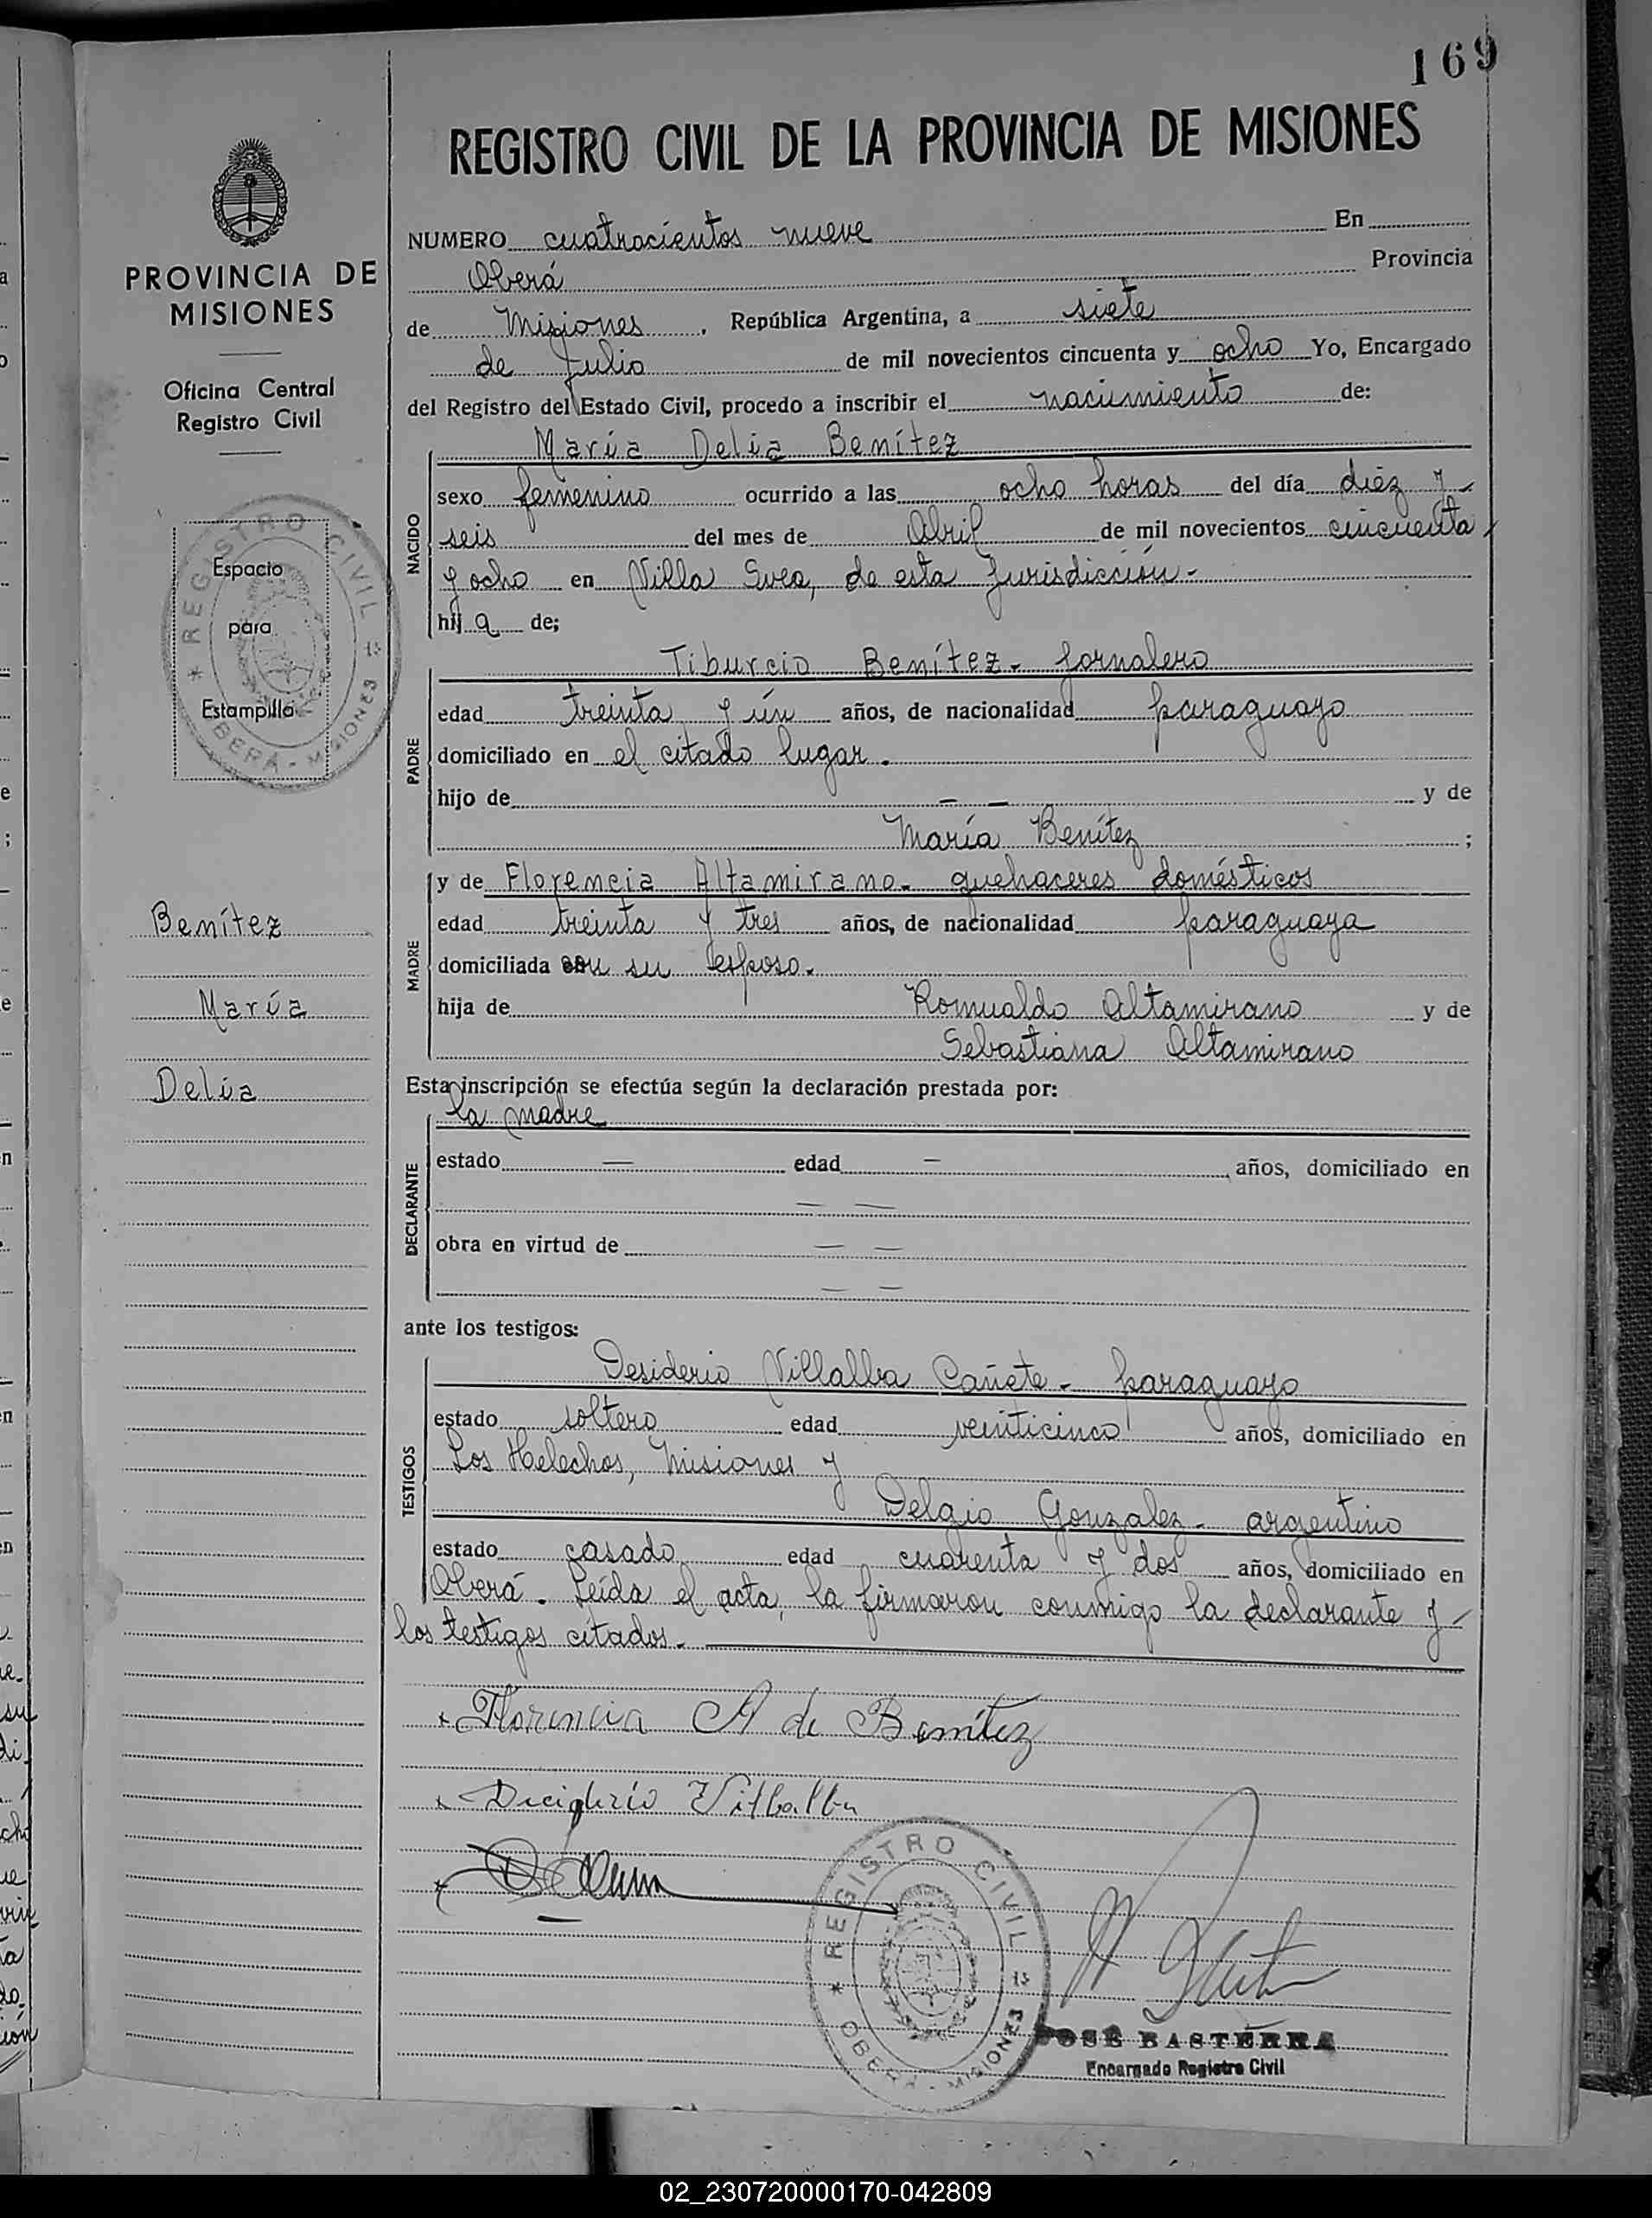 169
REGISTRO CIVIL DE LA PROVINCIA DE MISIONES
PROVINCIA DE
MISIONES
Oficina Central
Registro Civil
Espacio
para
Estampilla
REGISTRO CIVIL
OBERÁ - MISIONES
Benítez
María
Delia
NUMERO cuatrocientos nueve En
Oberá Provincia
de Misiones, República Argentina, a siete
de Julio de mil novecientos cincuenta y ocho Yo, Encargado
del Registro del Estado Civil, procedo a inscribir el nacimiento de:
NACIDO
María Delia Benítez
sexo femenino ocurrido a las ocho horas del día diez y
seis del mes de Abril de mil novecientos cincuenta
y ocho en Villa Svea, de esta Jurisdicción.-
hija de;
PADRE
Tiburcio Benítez - Jornalero
edad treinta y ún años, de nacionalidad paraguayo
domiciliado en el citado lugar.
hijo de — — y de
María Benítez ;
MADRE
y de Florencia Altamirano - quehaceres domésticos
edad treinta y tres años, de nacionalidad paraguaya
domiciliada con su esposo.
hija de Romualdo Altamirano y de
Sebastiana Altamirano
Esta inscripción se efectúa según la declaración prestada por:
DECLARANTE
la madre
estado — edad — años, domiciliado en
— —
obra en virtud de — —
— —
ante los testigos:
TESTIGOS
Desiderio Villalba Cañete - paraguayo
estado soltero edad veinticinco años, domiciliado en
Los Helechos, Misiones y
Delgio Gonzalez - argentino
estado casado edad cuarenta y dos años, domiciliado en
Oberá. Leída el acta, la firmaron conmigo la declarante y
los testigos citados.
Florencia A de Benítez
Deciderio Villalba
REGISTRO CIVIL
OBERÁ - MISIONES
JOSÉ BASTERRA
Encargado Registro Civil
02_230720000170-042809